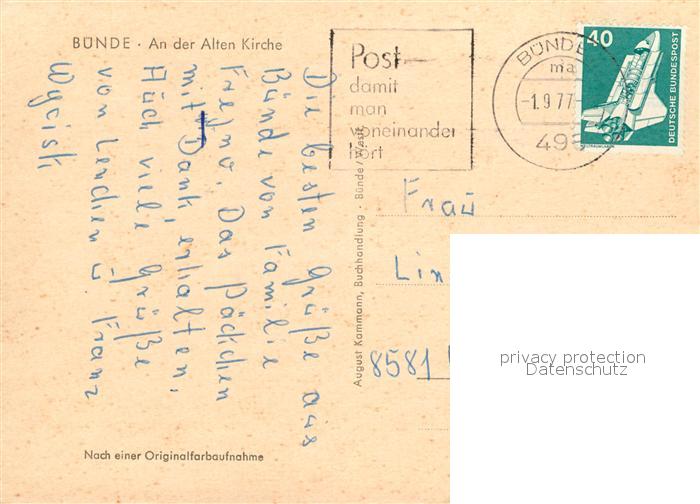 BÜNDE · An der Alten Kirche
Die besten Grüße aus
Bünde von Familie
Das Päckchen
mit Dank erhalten.
Auch viele Grüße
von u. Franz
Nach einer Originalfarbaufnahme
August Kammann, Buchhandlung · Bünde/Westf.
Post
damit
man
voneinander
hört
BÜNDE
-1.9.77
40
DEUTSCHE BUNDESPOST
Frau
8581
privacy protection
Datenschutz